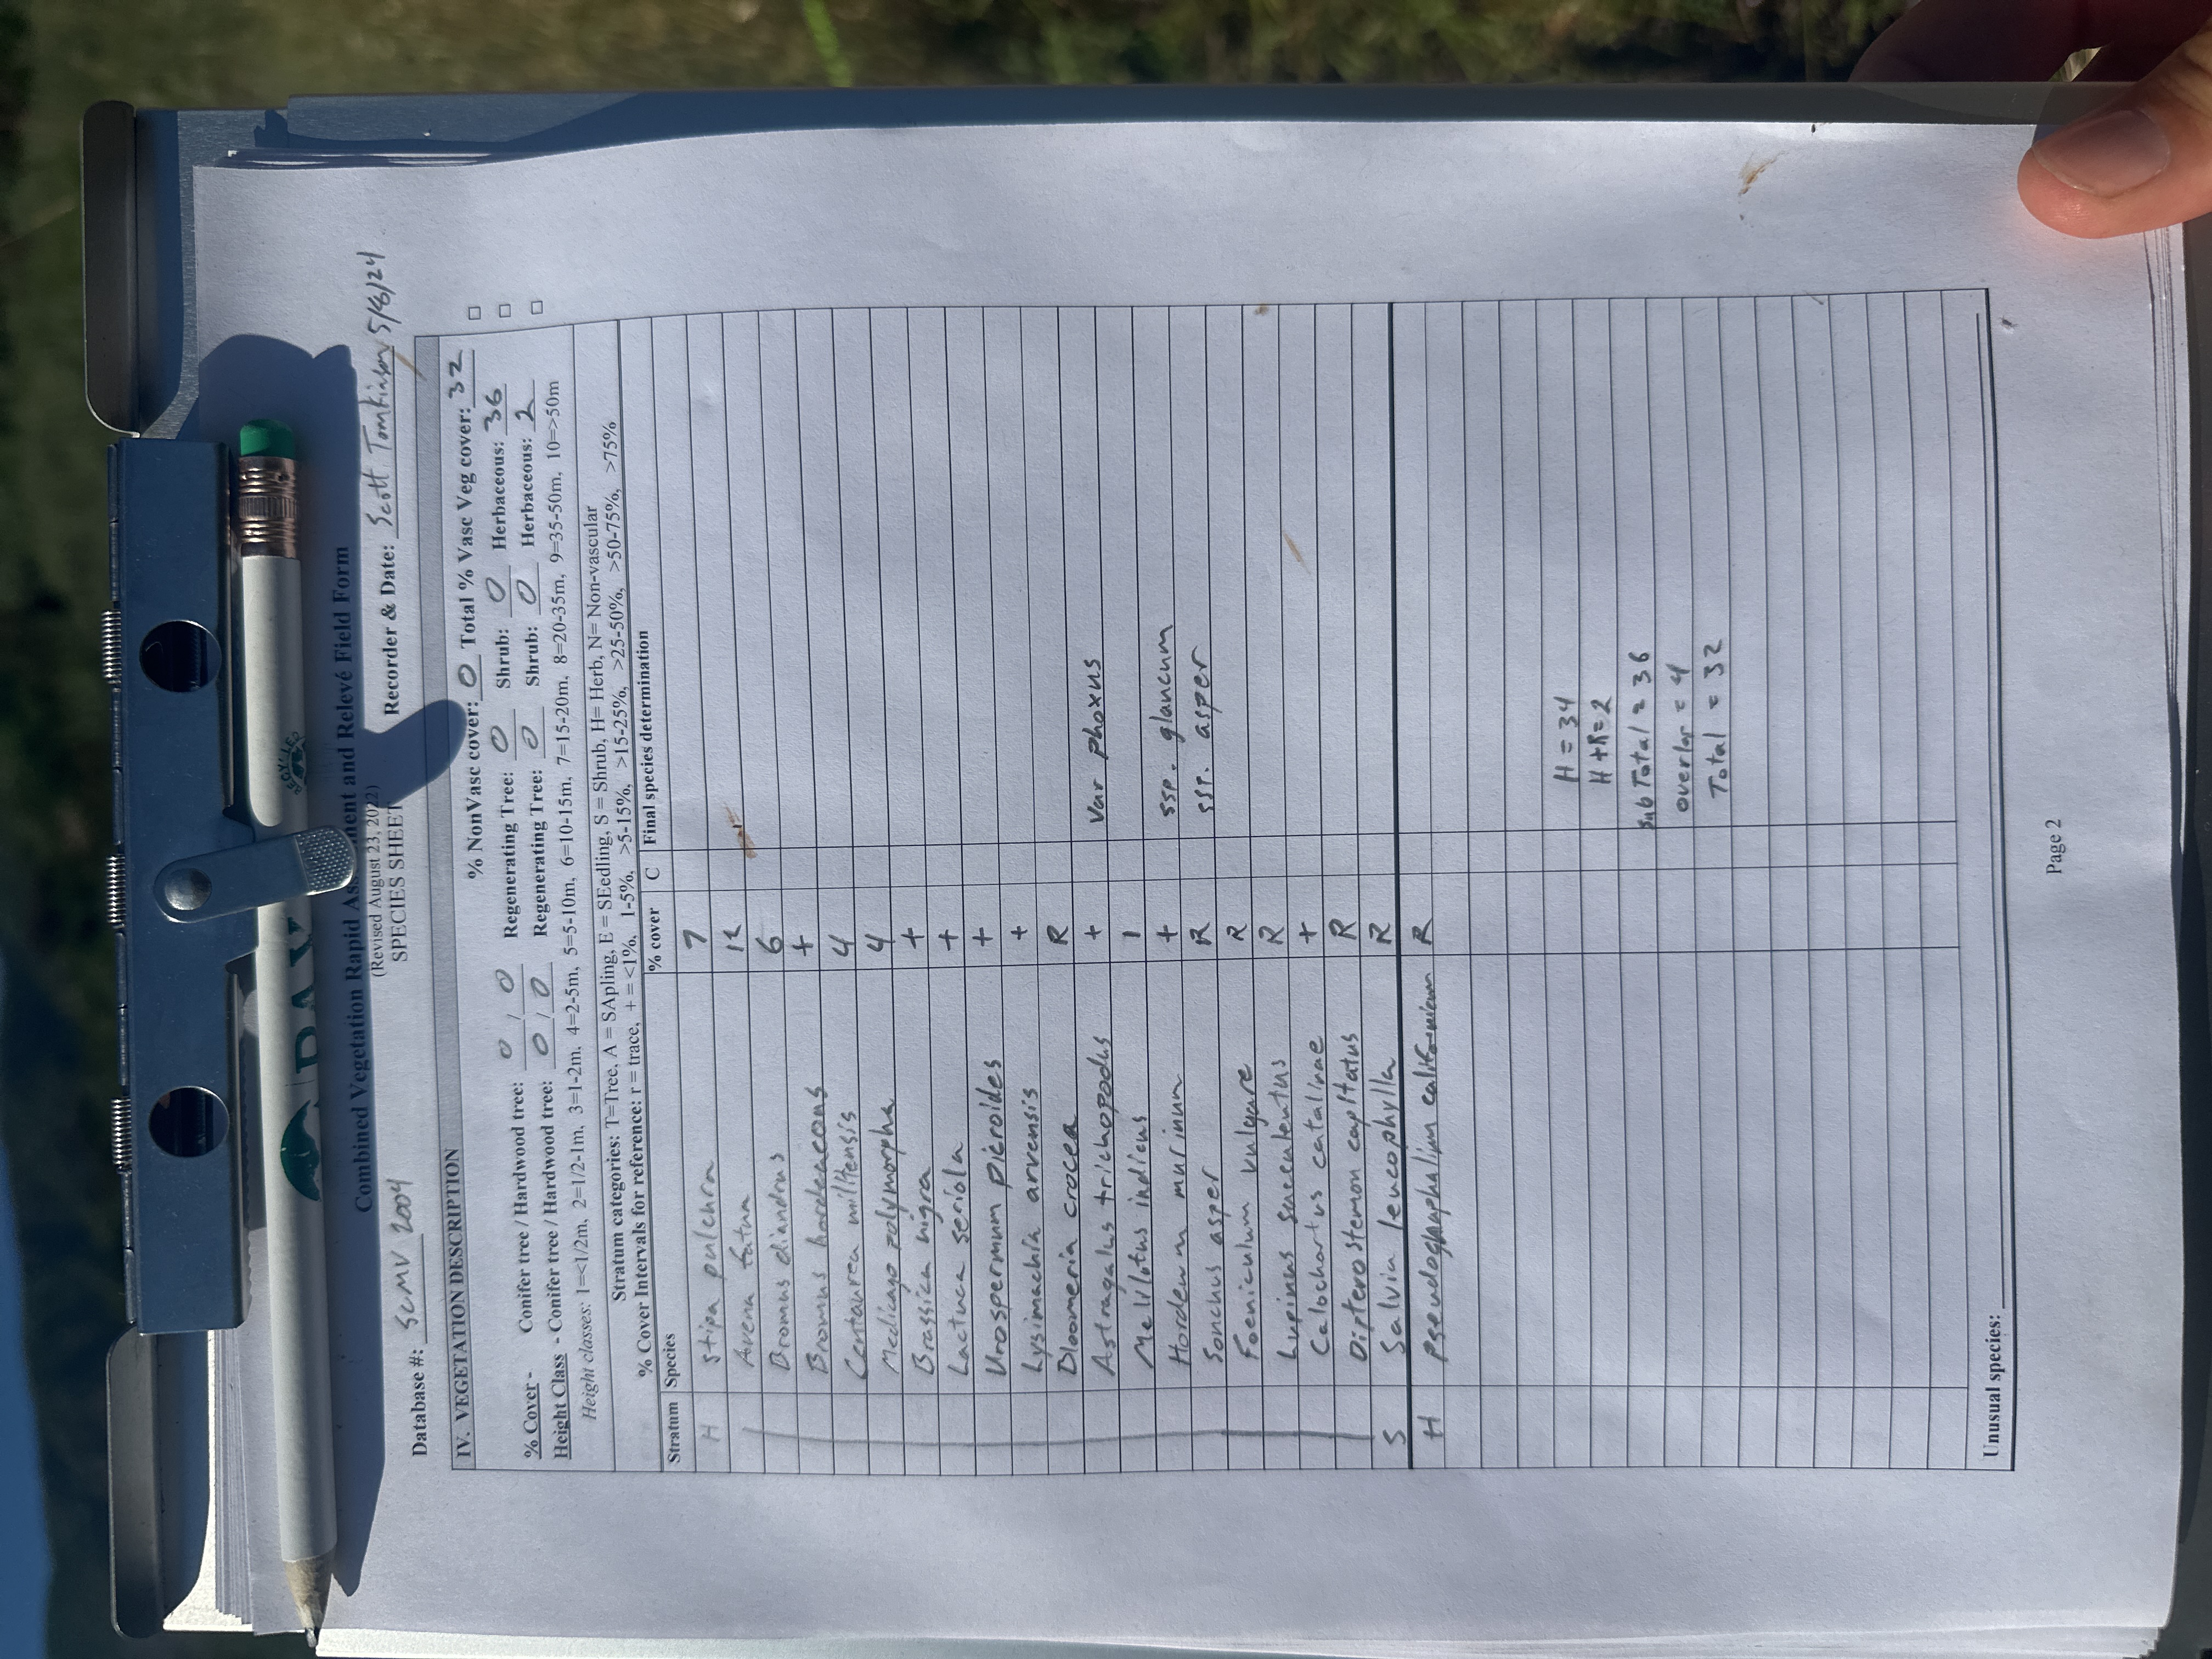 Combined Vegetation Rapid Assessment and Relevé Field Form
(Revised August 23, 2022)
SPECIES SHEET
Database #: SCMV 2004 Recorder & Date: Scott Tomkinson 5/8/24
IV. VEGETATION DESCRIPTION
% NonVasc cover: 0 Total % Vasc Veg cover: 32 □
% Cover - Conifer tree / Hardwood tree: 0 / 0 Regenerating Tree: 0 Shrub: 0 Herbaceous: 36 □
Height Class - Conifer tree / Hardwood tree: 0 / 0 Regenerating Tree: 0 Shrub: 0 Herbaceous: 2 □
Height classes: 1=<1/2m, 2=1/2-1m, 3=1-2m, 4=2-5m, 5=5-10m, 6=10-15m, 7=15-20m, 8=20-35m, 9=35-50m, 10=>50m
Stratum categories: T=Tree, A = SApling, E = SEedling, S = Shrub, H= Herb, N= Non-vascular
% Cover Intervals for reference: r = trace, + = <1%, 1-5%, >5-15%, >15-25%, >25-50%, >50-75%, >75%
Stratum Species % cover C Final species determination
H Stipa pulchra 7
Avena fatua 12
Bromus diandrus 6
Bromus hordeaceous +
Centaurea militensis 4
Medicago polymorpha 4
Brassica nigra +
Lactuca seriola +
Urospermum picroides +
Lysimachia arvensis +
Bloomeria crocea R
Astragalus trichopodus + var phoxus
Melilotus indicus 1
Hordeum murinum + ssp. glaucum
Sonchus asper R ssp. asper
Foeniculum vulgare R
Lupinus succulentus R
Calochortus catalinae +
Dipterostemon capitatus R
S Salvia leucophylla R
H Pseudognaphalium californicum R
H = 34
H+R=2
subTotal = 36
overlap = 4
Total = 32
Unusual species:
Page 2